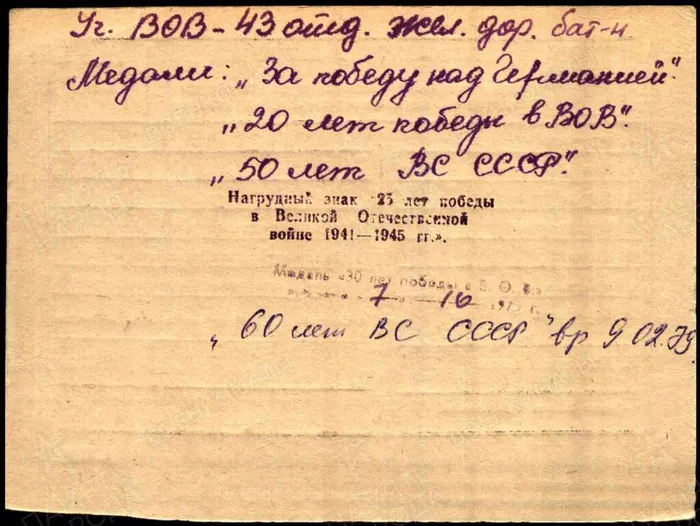 Уч. ВОВ – 43 отд. жел. дор. бат-н
Медали: „За победу над Германией"
„20 лет победы в ВОВ".
„50 лет ВС СССР".
Нагрудный знак «25 лет победы
в Великой Отечественной
войне 1941—1945 гг.».
Медаль «30 лет победы в В. О. В.»
7 — 10 1975 г.
„60 лет ВС СССР" вр 9 02.79.